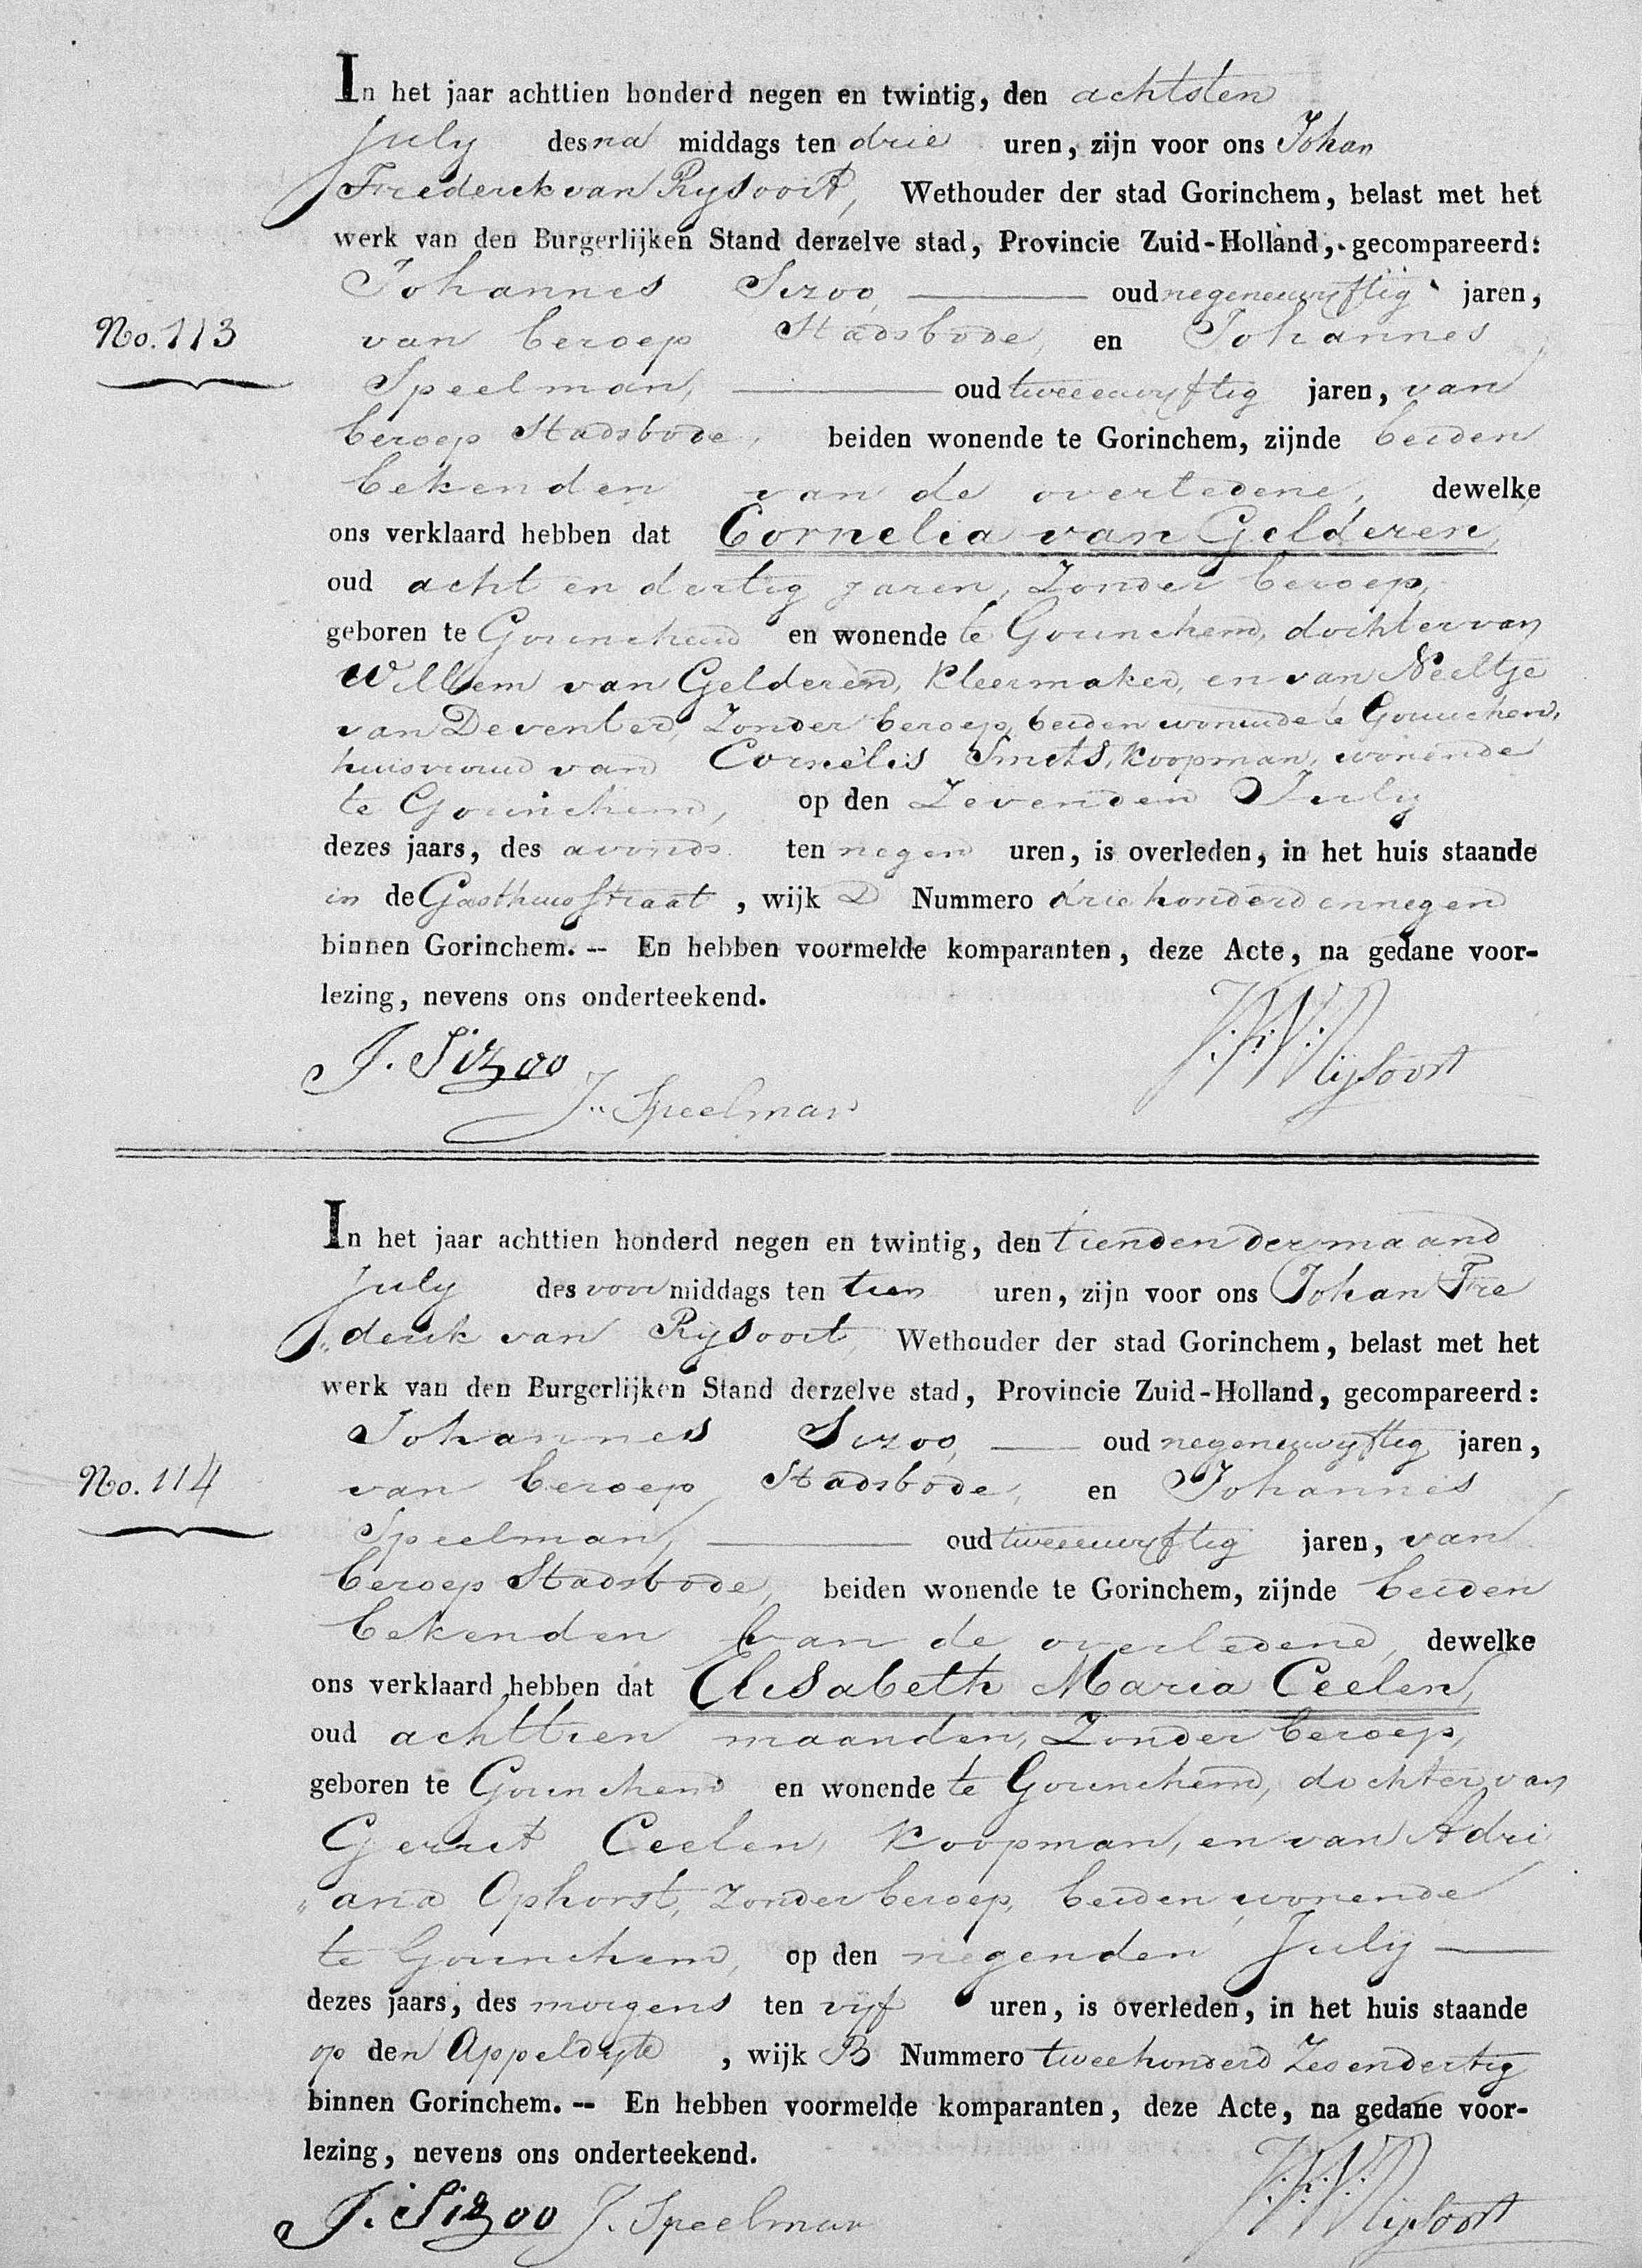 In het jaar achttien honderd negen en twintig, den achtsten
July des na middags ten drie uren, zijn voor ons Johan
Frederik van Rysoort, Wethouder der stad Gorinchem, belast met het
werk van den Burgerlijken Stand derzelve stad, Provincie Zuid-Holland, gecompareerd:
Johannes Sizoo, oud negenenvyftig jaren,
No. 113
van beroep Stadsbode, en Johannes
Speelman, oud tweeenvyftig jaren, van
beroep Stadsbode, beiden wonende te Gorinchem, zijnde beiden
bekenden van de overledene, dewelke
ons verklaard hebben dat Cornelia van Gelderen,
oud acht en dertig jaren, Zonder beroep,
geboren te Gorinchem en wonende te Gorinchem, dochter van
Willem van Gelderen, Kleermaker, en van Neeltje
van Deventer, Zonder beroep, beiden wonende te Gorinchem,
huisvrouw van Cornelis Smets, Koopman, wonende
te Gorinchem, op den Zevenden July
dezes jaars, des avonds ten negen uren, is overleden, in het huis staande
in de Gasthuisstraat, wijk D Nummero driehonderd en negen
binnen Gorinchem. -- En hebben voormelde komparanten, deze Acte, na gedane voor-
lezing, nevens ons onderteekend.
J. Sizoo
J. Speelman
J. F. V. Rijsoort
In het jaar achttien honderd negen en twintig, den tienden der maand
July des voor middags ten tien uren, zijn voor ons Johan Fre
„derik van Rysoort, Wethouder der stad Gorinchem, belast met het
werk van den Burgerlijken Stand derzelve stad, Provincie Zuid-Holland, gecompareerd:
Johannes Sizoo, oud negenenvyftig jaren,
No. 114
van beroep Stadsbode, en Johannes
Speelman, oud tweeenvyftig jaren, van
beroep Stadsbode, beiden wonende te Gorinchem, zijnde beiden
bekenden van de overledene, dewelke
ons verklaard hebben dat Elisabeth Maria Ceelen,
oud achttien maanden, Zonder beroep,
geboren te Gorinchem en wonende te Gorinchem, dochter van
Gerrit Ceelen, Koopman, en van Adri
„ana Ophorst, Zonder beroep, beiden wonende
te Gorinchem, op den negenden July
dezes jaars, des morgens ten vyf uren, is overleden, in het huis staande
op den Appeldyk, wijk B Nummero tweehonderd Zesendertig
binnen Gorinchem. -- En hebben voormelde komparanten, deze Acte, na gedane voor-
lezing, nevens ons onderteekend.
J. Sizoo J. Speelman
J. F. V. Rijsoort